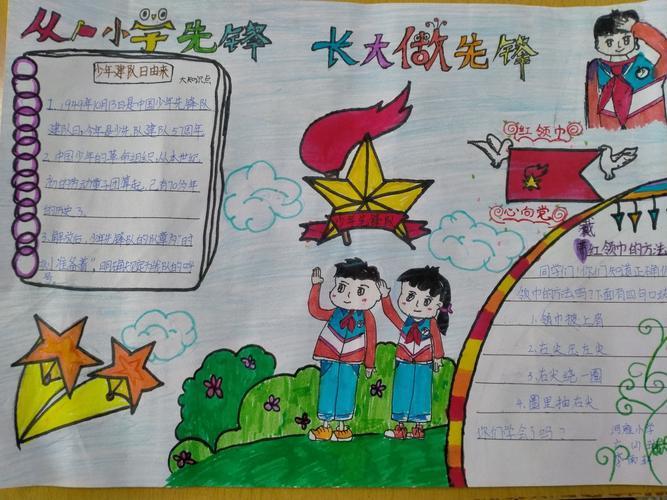 从小学先锋 长大做先锋
少年建队日由来
大知识点
1、1949年10月13日是中国少年先锋队
建队日,今年是少年队建队57周年
2、中国少年的革命组织,从本世纪
初的劳动童子团算起,已有70余年
的历史了
3、解放后,少年先锋队的队章为"时
刻准备着",明确规定为我队的呼
号
少年先锋队
红领巾
心向党
戴
红领巾的方法
同学们!你们知道正确
领巾的方法吗?下面有四句口
1.领巾披上肩
2.右尖压左尖
3.右尖绕一圈
4.圈里抽右尖
你们学会了吗?
小学